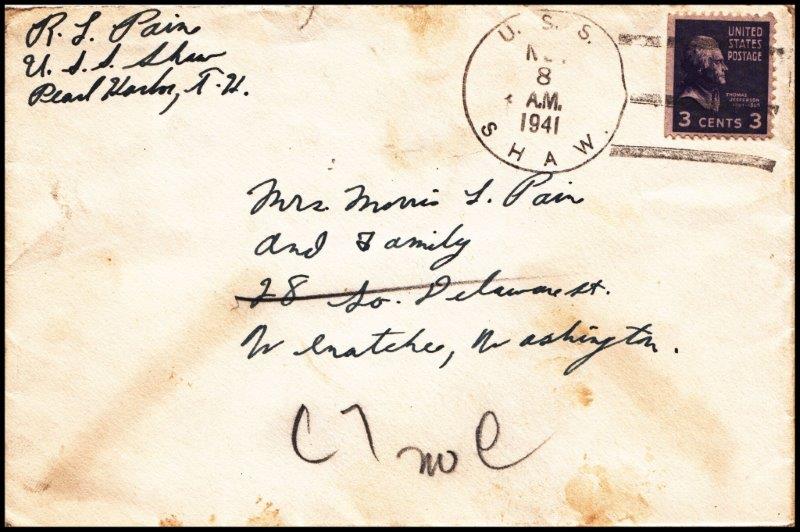 R. L. Pain
U. S. S. Shaw
Pearl Harbor, T. H.
U. S. S.
8
A.M.
1941
SHAW.
UNITED
STATES
POSTAGE
THOMAS
JEFFERSON
3 CENTS 3
Mrs. Morris L. Pain
and Family
28 So. Delaware St.
Wenatchee, Washington.